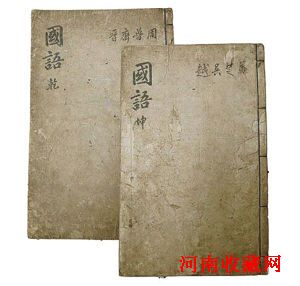 周魯齊晋
國語
乾
鄭楚吳越
國語
坤
河南收藏网